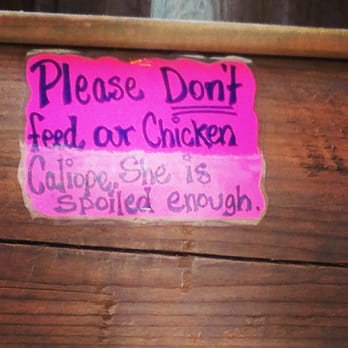 Please Don't
feed our Chicken
Caliope. She is
spoiled enough.